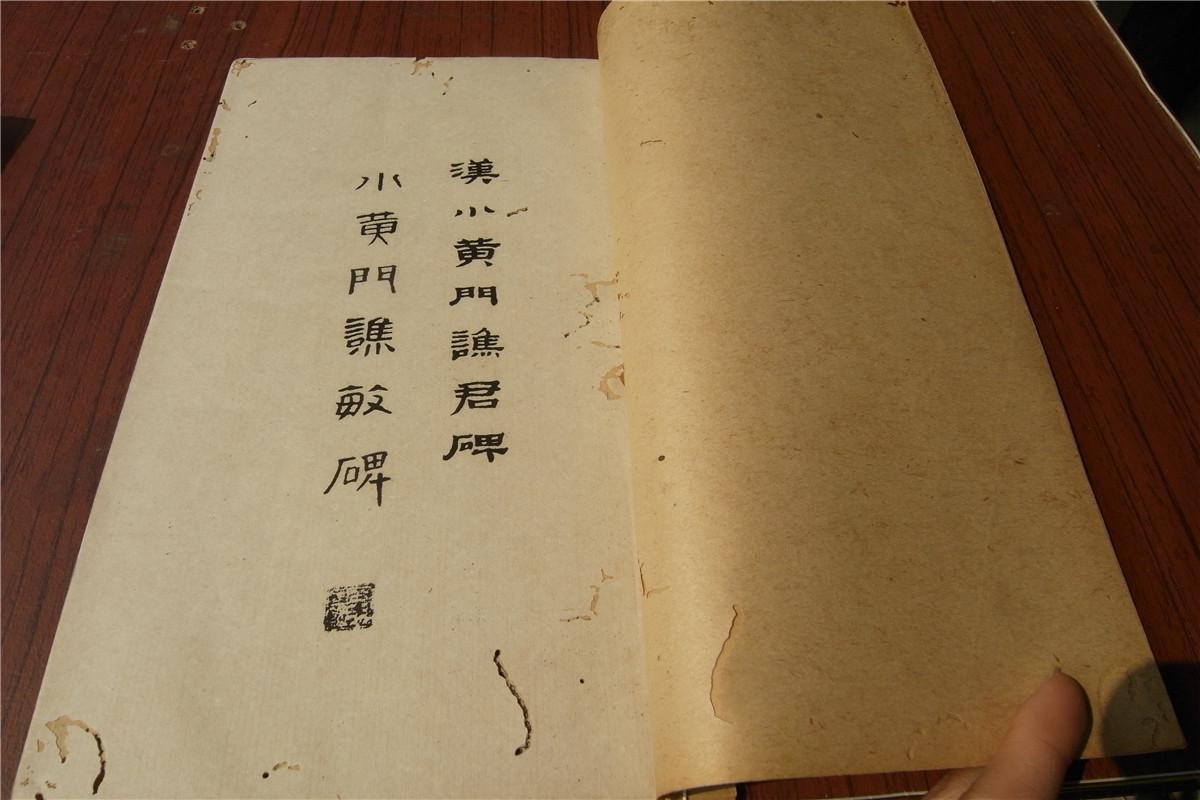 漢小黃門譙君碑
小黃門譙敏碑